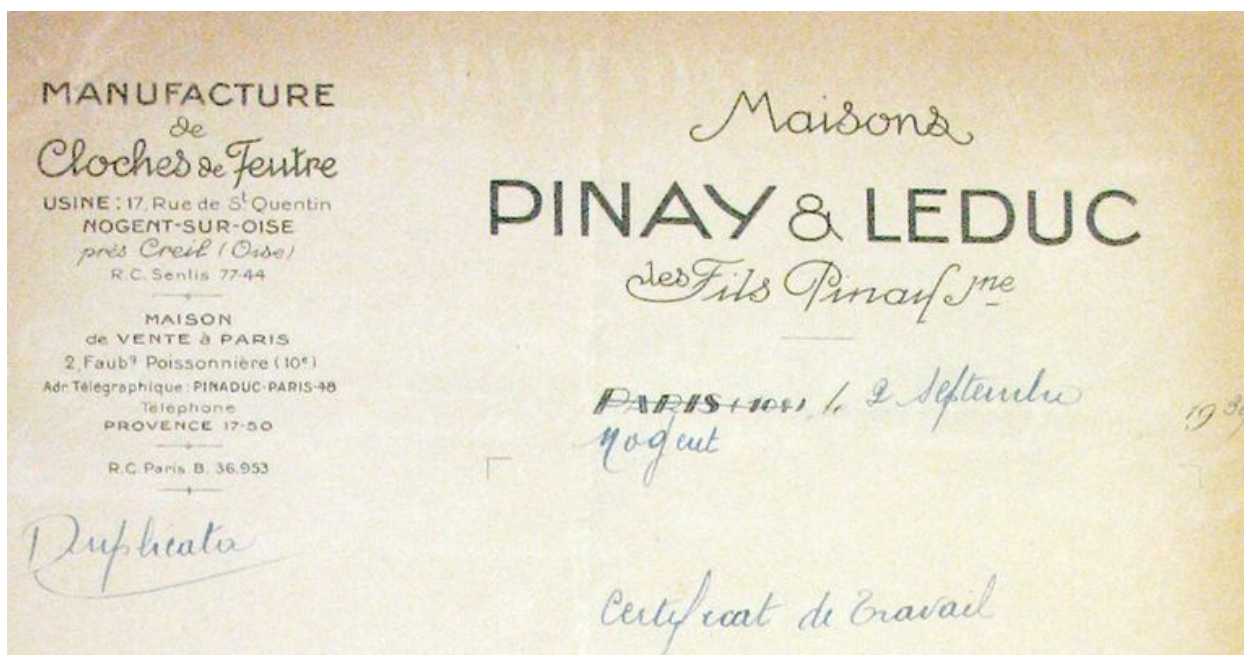 MANUFACTURE
de
Cloches de Feutre
USINE : 17, Rue de St Quentin
NOGENT-SUR-OISE
près Creil (Oise)
R.C. Senlis 77-44
MAISON
de VENTE à PARIS
2, Faubg Poissonnière (10e)
Adr Télégraphique : PINADUC-PARIS-48
Téléphone
PROVENCE 17-50
R.C. Paris B. 36.953
Duplicata
Maisons
PINAY & LEDUC
les Fils Pinay Sne
PARIS (10e), le 2 Septembre 1939
Nogent
Certificat de Travail